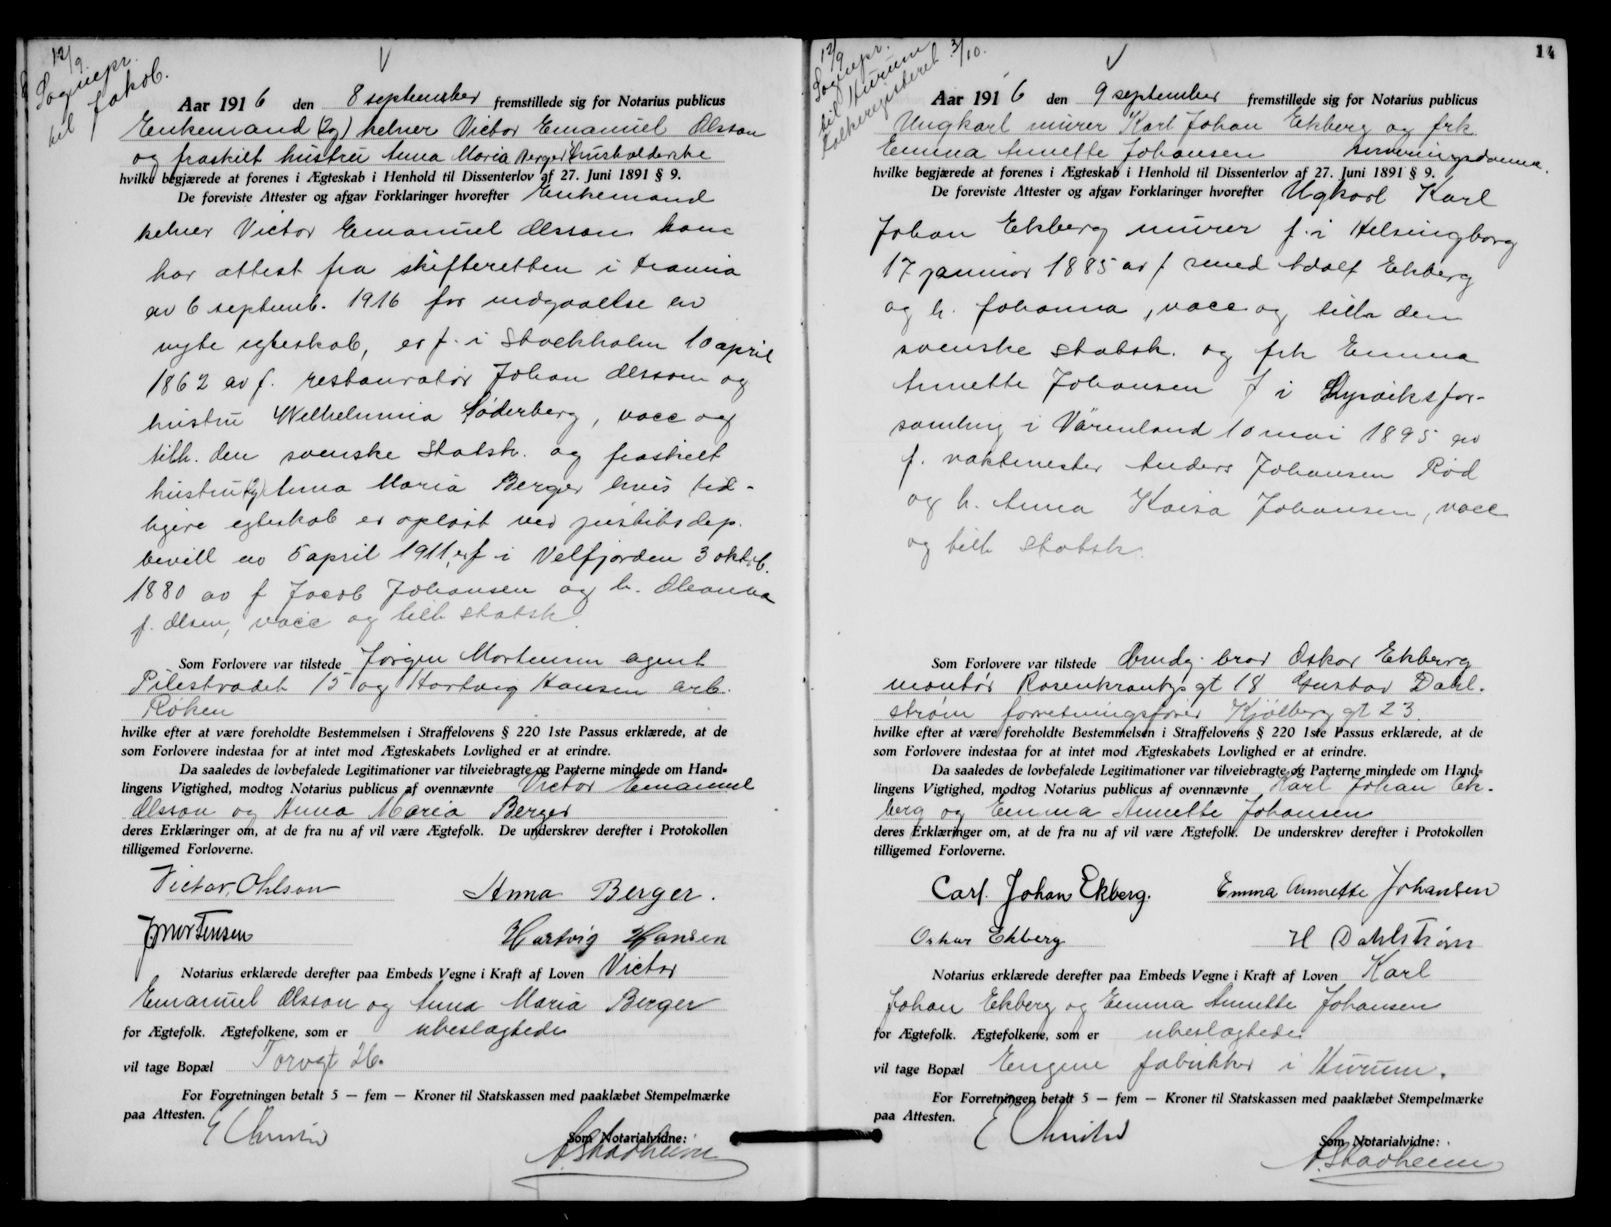 12/9.
Sognepr.
til Jakob.
Aar 1916 den 8 september fremstillede sig for Notarius publicus
Enkemand (2g) kelner Victor Emanuel Olsson
og fraskilt hustru Anna Maria Berger husholderske
hvilke begjærede at forenes i Ægteskab i Henhold til Dissenterlov af 27. Juni 1891 § 9.
De foreviste Attester og afgav Forklaringer hvorefter Enkemand
kelner Victor Emanuel Olsson som
har attest fra skifteretten i Krania
av 6 septemb. 1916 for indgaaelse av
nyte egteskab, er f. i Stockholm 10 april
1862 av f. restauratør Johan Olsson og
hustru Wilhelmina Søderberg, vacc og
tilh. den svenske Statsk. og fraskilt
hustru (2g) Anna Maria Berger hvis tid-
ligere egteskab er opløst ved justitsdep.
bevill av 5 april 1911, er f i Velfjorden 3 oktob.
1880 av f Jacob Johansen og h. Oleanna
f. Olsen, vacc og tilh statsk.
Som Forlovere var tilstede Jørgen Mortensen agent
Pilestrædet 15 og Hartvig Hansen arb.
Røken
hvilke efter at være foreholdte Bestemmelsen i Straffelovens § 220 1ste Passus erklærede, at de
som Forlovere indestaa for at intet mod Ægteskabets Lovlighed er at erindre.
Da saaledes de lovbefalede Legitimationer var tilveiebragte og Parterne mindede om Hand-
lingens Vigtighed, modtog Notarius publicus af ovennævnte Victor Emanuel
Olsson og Anna Maria Berger
deres Erklæringer om, at de fra nu af vil være Ægtefolk. De underskrev derefter i Protokollen
tilligemed Forloverne.
Victor, Ohlson Anna Berger.
J. Mortensen Hartvig Hansen
Notarius erklærede derefter paa Embeds Vegne i Kraft af Loven Victor
Emanuel Olsson og Anna Maria Berger
for Ægtefolk. Ægtefolkene, som er ubeslægtede
vil tage Bopæl Torvgt 26.
For Forretningen betalt 5 — fem — Kroner til Statskassen med paaklæbet Stempelmærke
paa Attesten.
Som Notarialvidne:
A. Stadheim
14
12/9
Sognepr.
til Hurum
Folkeregisteret 3/10.
Aar 1916 den 9 september fremstillede sig for Notarius publicus
Ungkarl murer Karl Johan Ekberg og frk
Emma Annette Johansen serveringsdame.
hvilke begjærede at forenes i Ægteskab i Henhold til Dissenterlov af 27. Juni 1891 § 9.
De foreviste Attester og afgav Forklaringer hvorefter Ugkarl Karl
Johan Ekberg murer f. i Helsingborg
17 januar 1885 av f smed Adolf Ekberg
og h. Johanna, vacc og tilh den
svenske statsk. og frk Emma
Annette Johansen f i Lysviksfor-
samling i Värmland 10 mai 1895 av
f. vaktmester Anders Johansen Rød
og h. Anna Kaisa Johansen, vacc
og tilh statsk.
Som Forlovere var tilstede Brudg. bror Oskar Ekberg
montør Rosenkrantzgt 18 Gustav Dahl-
strøm forretningsfører Kjølberg gt 23.
hvilke efter at være foreholdte Bestemmelsen i Straffelovens § 220 1ste Passus erklærede, at de
som Forlovere indestaa for at intet mod Ægteskabets Lovlighed er at erindre.
Da saaledes de lovbefalede Legitimationer var tilveiebragte og Parterne mindede om Hand-
lingens Vigtighed, modtog Notarius publicus af ovennævnte Karl Johan Ek-
berg og Emma Annette Johansen
deres Erklæringer om, at de fra nu af vil være Ægtefolk. De underskrev derefter i Protokollen
tilligemed Forloverne.
Carl. Johan Ekberg. Emma Annette Johansen
Oskar Ekberg H Dahlstrøm
Notarius erklærede derefter paa Embeds Vegne i Kraft af Loven Karl
Johan Ekberg og Emma Annette Johansen
for Ægtefolk. Ægtefolkene, som er ubeslægtede
vil tage Bopæl Engene fabrikker i Hurum.
For Forretningen betalt 5 — fem — Kroner til Statskassen med paaklæbet Stempelmærke
paa Attesten.
Som Notarialvidne:
A. Stadheim